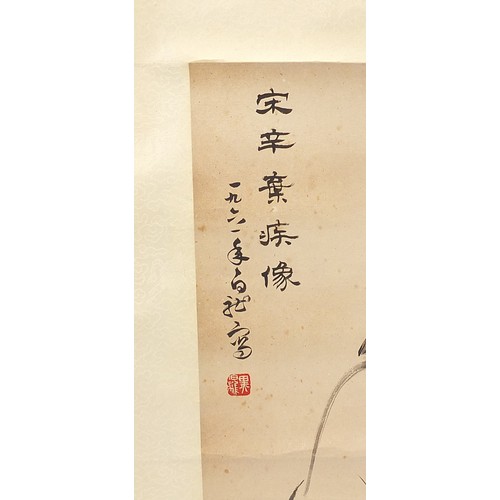 宋辛棄疾像
一九六一年白龍寫